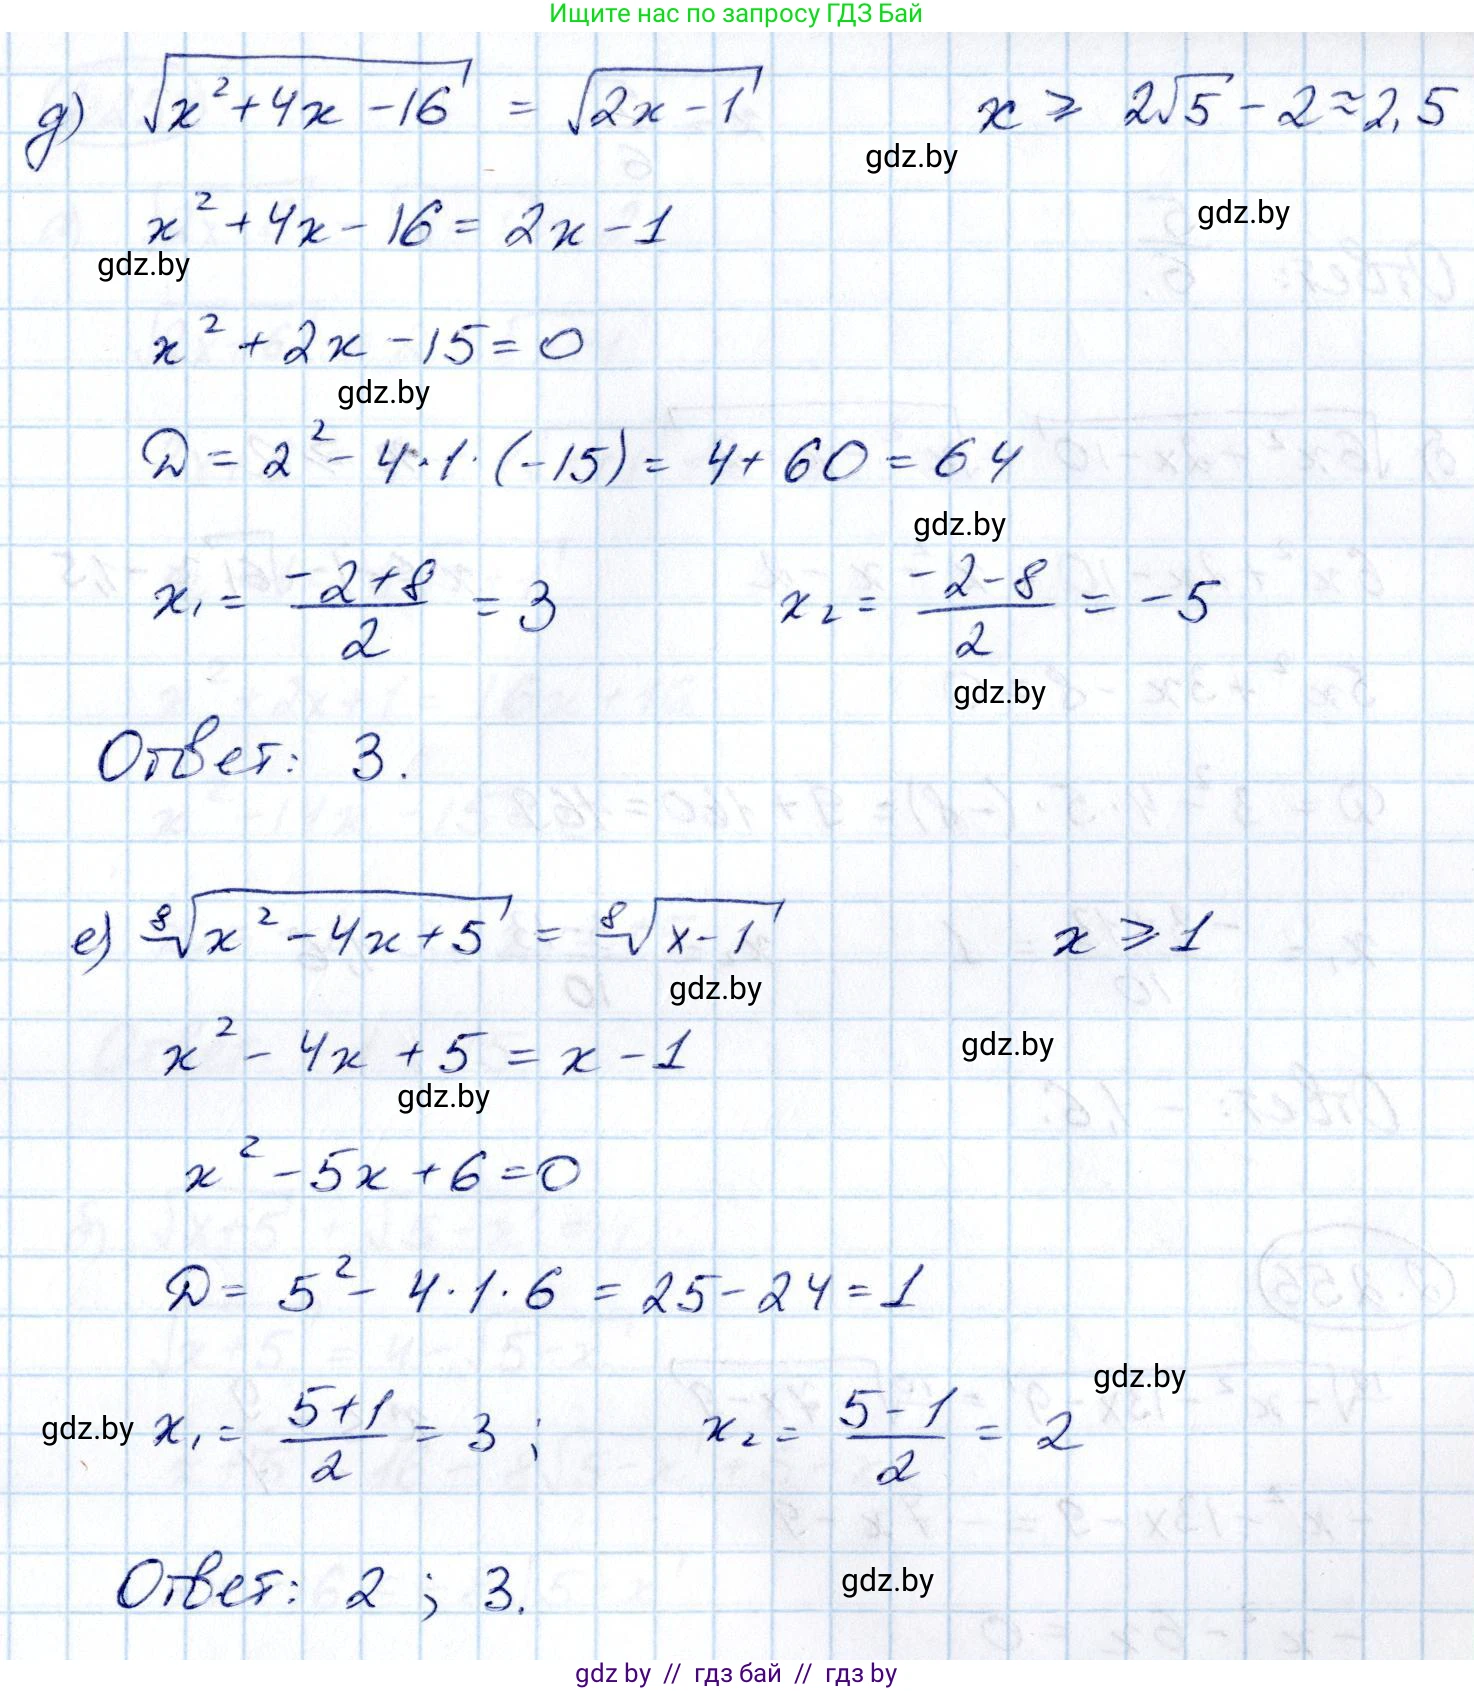 Ищите нас по запросу ГДЗ Бай
д) √(x²+4x-16) = √(2x-1)    x ⩾ 2√5 - 2 ≈ 2,5
gdz.by
gdz.by
x² + 4x - 16 = 2x - 1
gdz.by
x² + 2x - 15 = 0
gdz.by
D = 2² - 4·1·(-15) = 4 + 60 = 64
gdz.by
x₁ = (-2+8)/2 = 3    x₂ = (-2-8)/2 = -5
gdz.by
Ответ: 3.
е) ⁸√(x²-4x+5) = ⁸√(x-1)    x ⩾ 1
gdz.by
x² - 4x + 5 = x - 1
gdz.by
gdz.by
x² - 5x + 6 = 0
D = 5² - 4·1·6 = 25 - 24 = 1
gdz.by
gdz.by x₁ = (5+1)/2 = 3 ;    x₂ = (5-1)/2 = 2
Ответ: 2 ; 3.
gdz.by
gdz by // гдз бай // гдз by